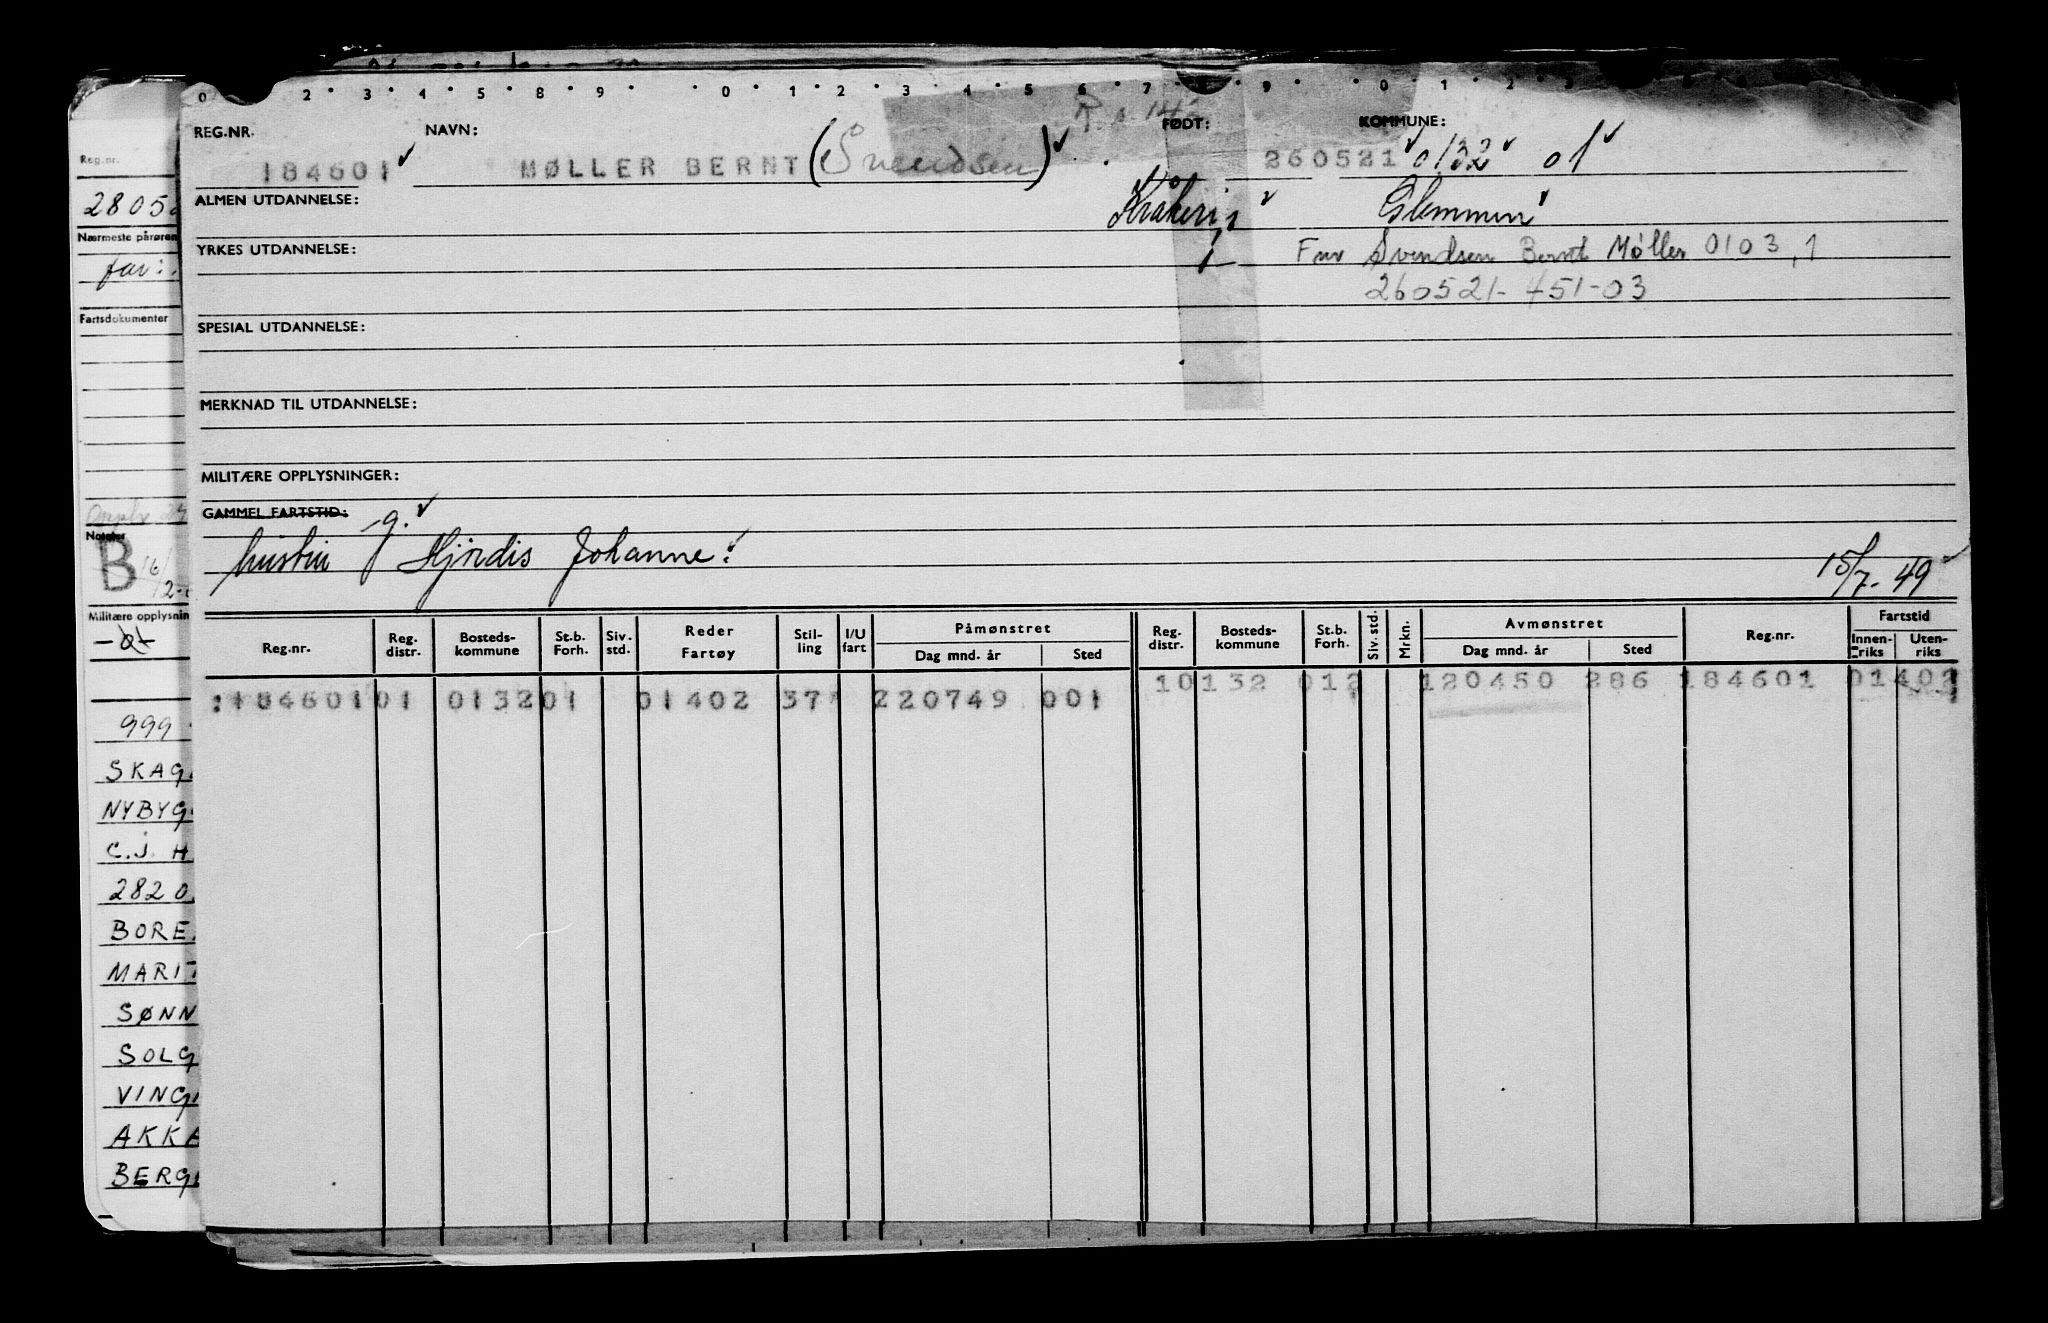 0 2 3 4 5 8 9 0 1 2 3 4 5 6 7 8 9 0 1 2 3
REG.NR. NAVN: FØDT: KOMMUNE:
184601 MØLLER BERNT (Svendsen) 260521 0132 01
ALMEN UTDANNELSE: Glemmen
YRKES UTDANNELSE: Svendsen Bernt Møller 0103,1
260521-451-03
SPESIAL UTDANNELSE:
MERKNAD TIL UTDANNELSE:
MILITÆRE OPPLYSNINGER:
GAMMEL FARTSTID: g.
hustru Hjørdis Johanne: 15/7-49
Reg.nr. Reg. distr. Bosteds-kommune St.b. Forh. Siv. std. Reder Fartøy Stil-ling I/U fart Påmønstret Dag mnd. år Sted Reg. distr. Bosteds-kommune St.b. Forh. Siv. std. Mrkn. Avmønstret Dag mnd. år Sted Reg.nr. Fartstid Innen-riks Uten-riks
184601 01 0132 01 01402 37 220749 001 10132 012 120450 286 184601 01402
Reg.nr.
2805
Nærmeste pårøren
far:
Fartsdokumenter
Notater
B 16/2-
Militære opplysnin
999
SKAG
NYBYG
C.J. H
2820
BORE
MARIT
SØNN
SOLG
VING
AKKA
BERG